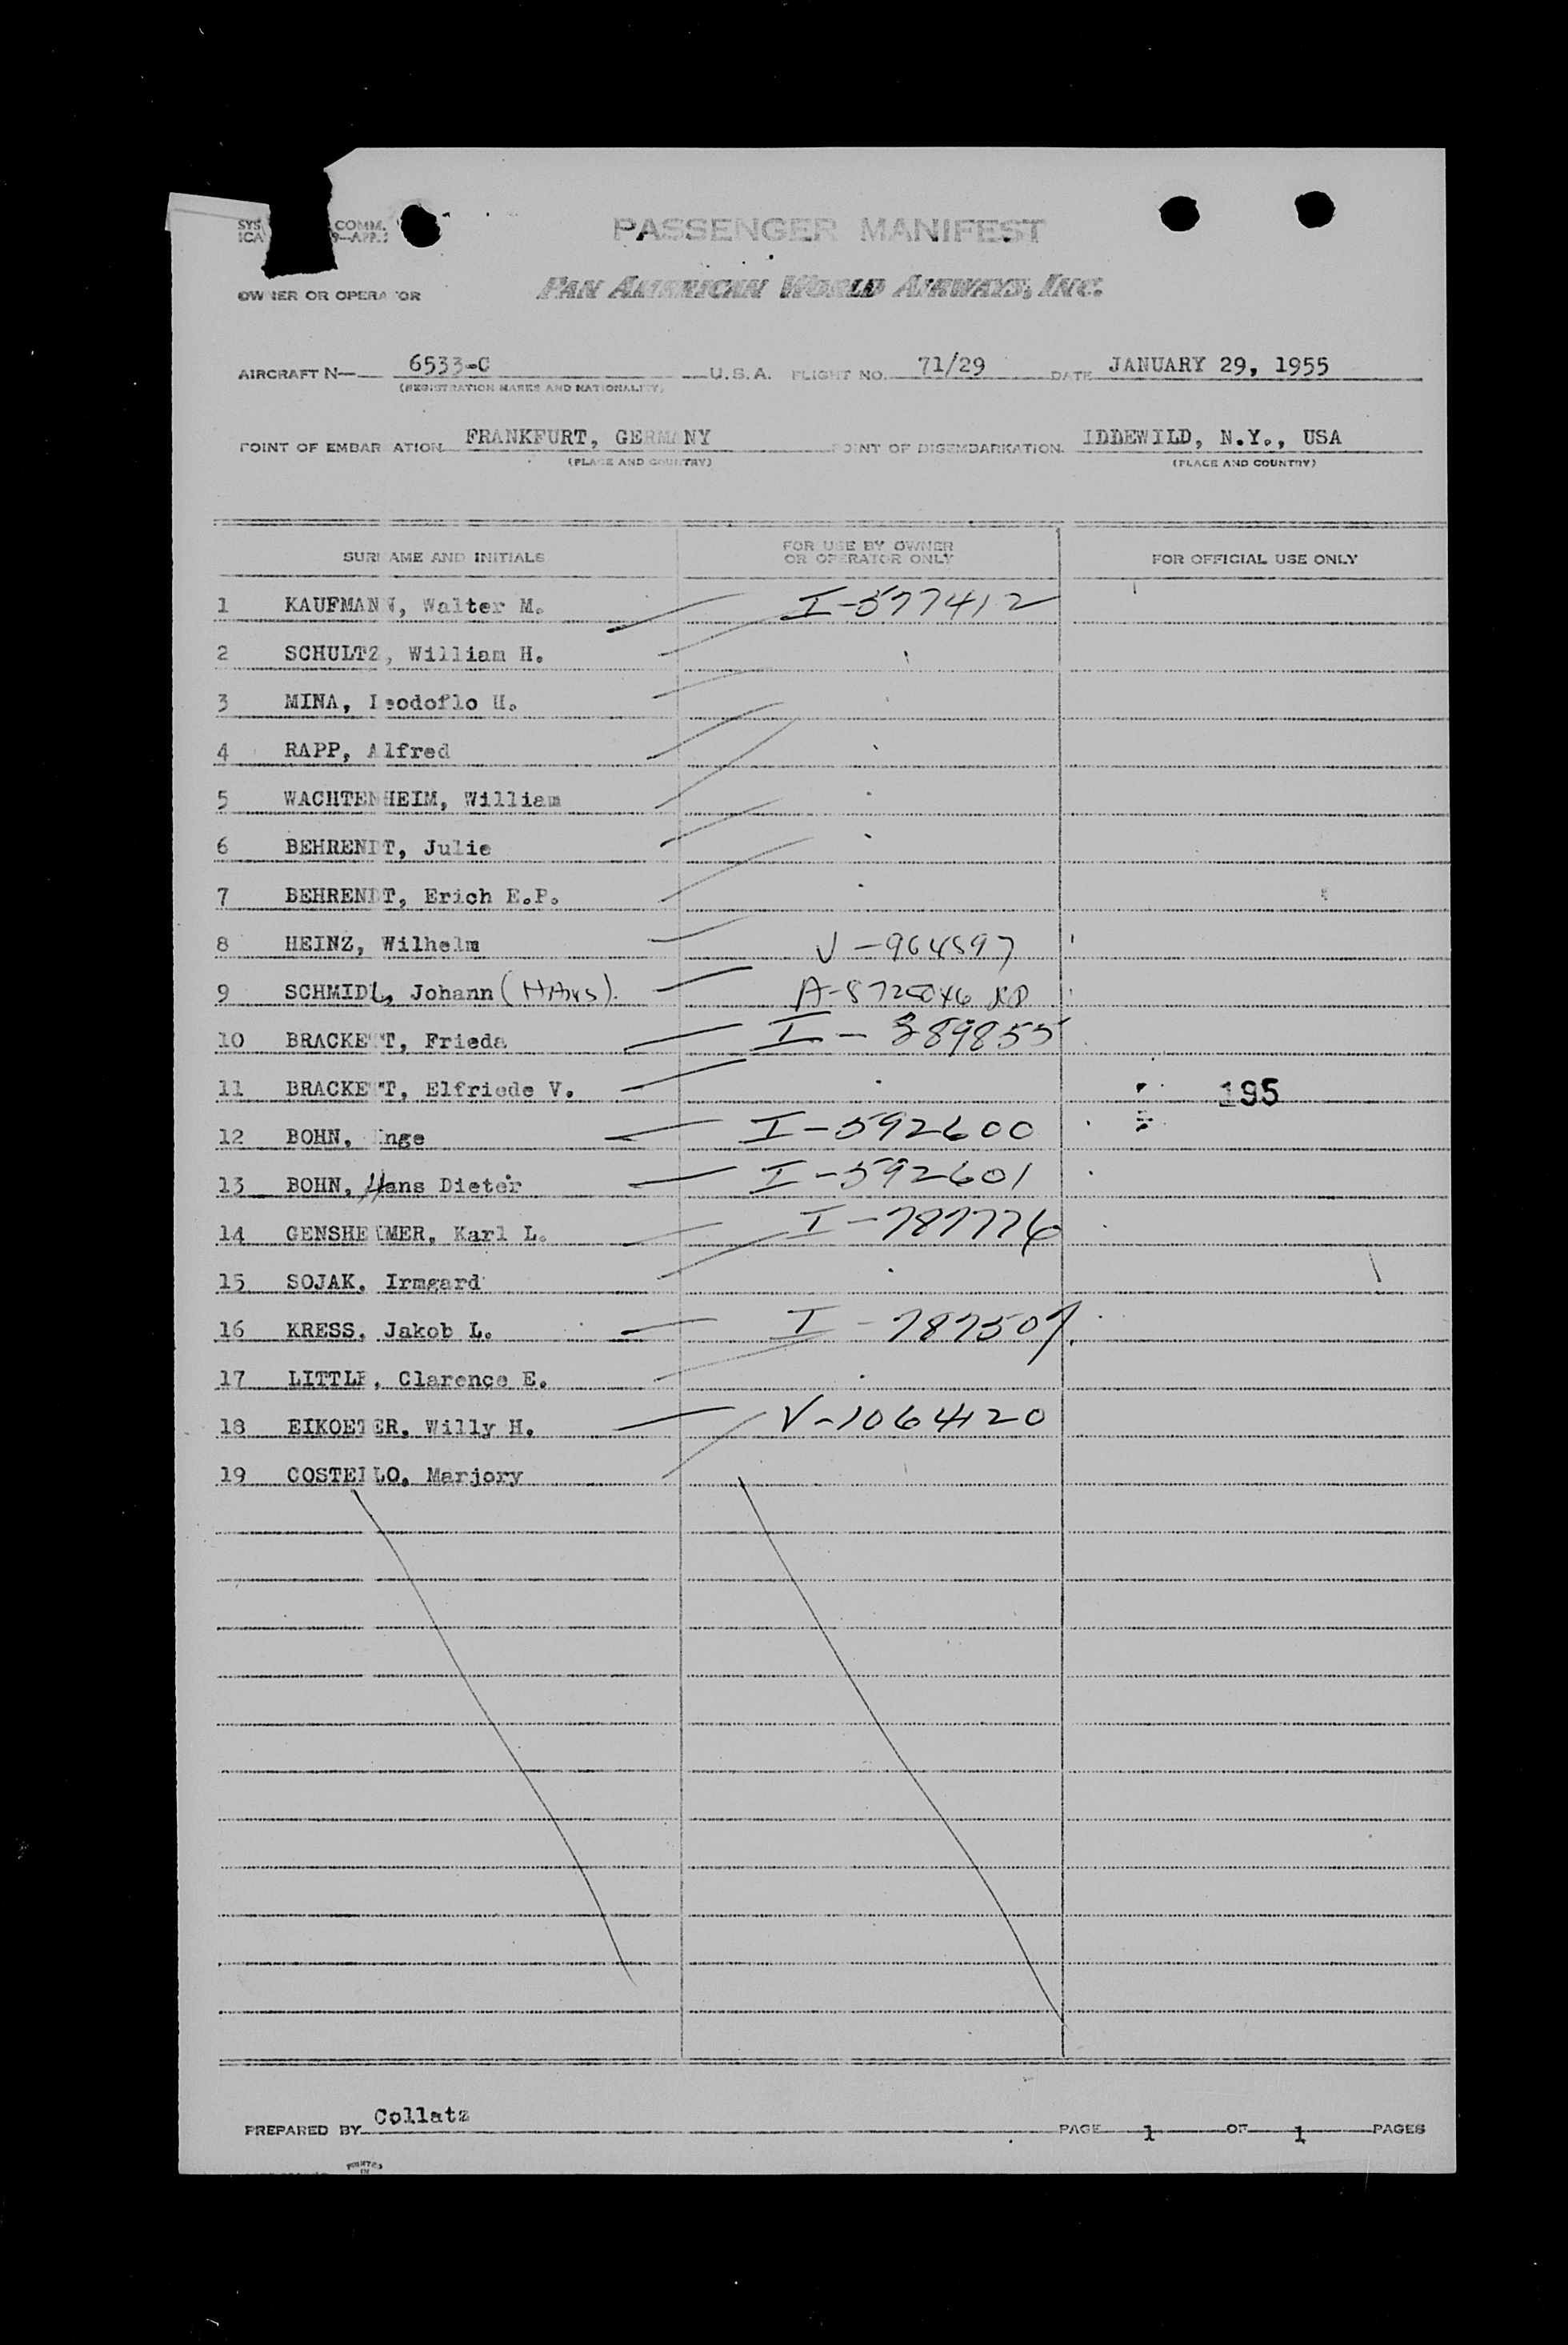 SYS COMM.
ICA 9—APP.
PASSENGER MANIFEST
OWNER OR OPERATOR PAN AMERICAN WORLD AIRWAYS, INC.
AIRCRAFT N— 6533-C U.S.A. FLIGHT NO. 71/29 DATE JANUARY 29, 1955
(REGISTRATION MARKS AND NATIONALITY)
POINT OF EMBAR ATION FRANKFURT, GERMANY POINT OF DISEMBARKATION IDDEWILD, N.Y., USA
(PLACE AND COUNTRY) (PLACE AND COUNTRY)
SURNAME AND INITIALS FOR USE BY OWNER OR OPERATOR ONLY FOR OFFICIAL USE ONLY
1 KAUFMANN, Walter M. I-577412
2 SCHULTZ, William H.
3 MINA, Leodoflo H.
4 RAPP, Alfred
5 WACHTENHEIM, William
6 BEHRENDT, Julie
7 BEHRENDT, Erich E.P.
8 HEINZ, Wilhelm V-964597
9 SCHMIDL, Johann (HANS). A-8725046
10 BRACKETT, Frieda I-389855
11 BRACKETT, Elfriede V. 195
12 BOHN, Inge I-592600
13 BOHN, Hans Dieter I-592601
14 GENSHEIMER, Karl L. I-787776
15 SOJAK, Irmgard
16 KRESS, Jakob L. I-787507
17 LITTLE, Clarence E.
18 EIKOETER, Willy H. V-1064120
19 COSTELLO, Marjory
PREPARED BY Collatz PAGE 1 OF 1 PAGES
PRINTED
IN